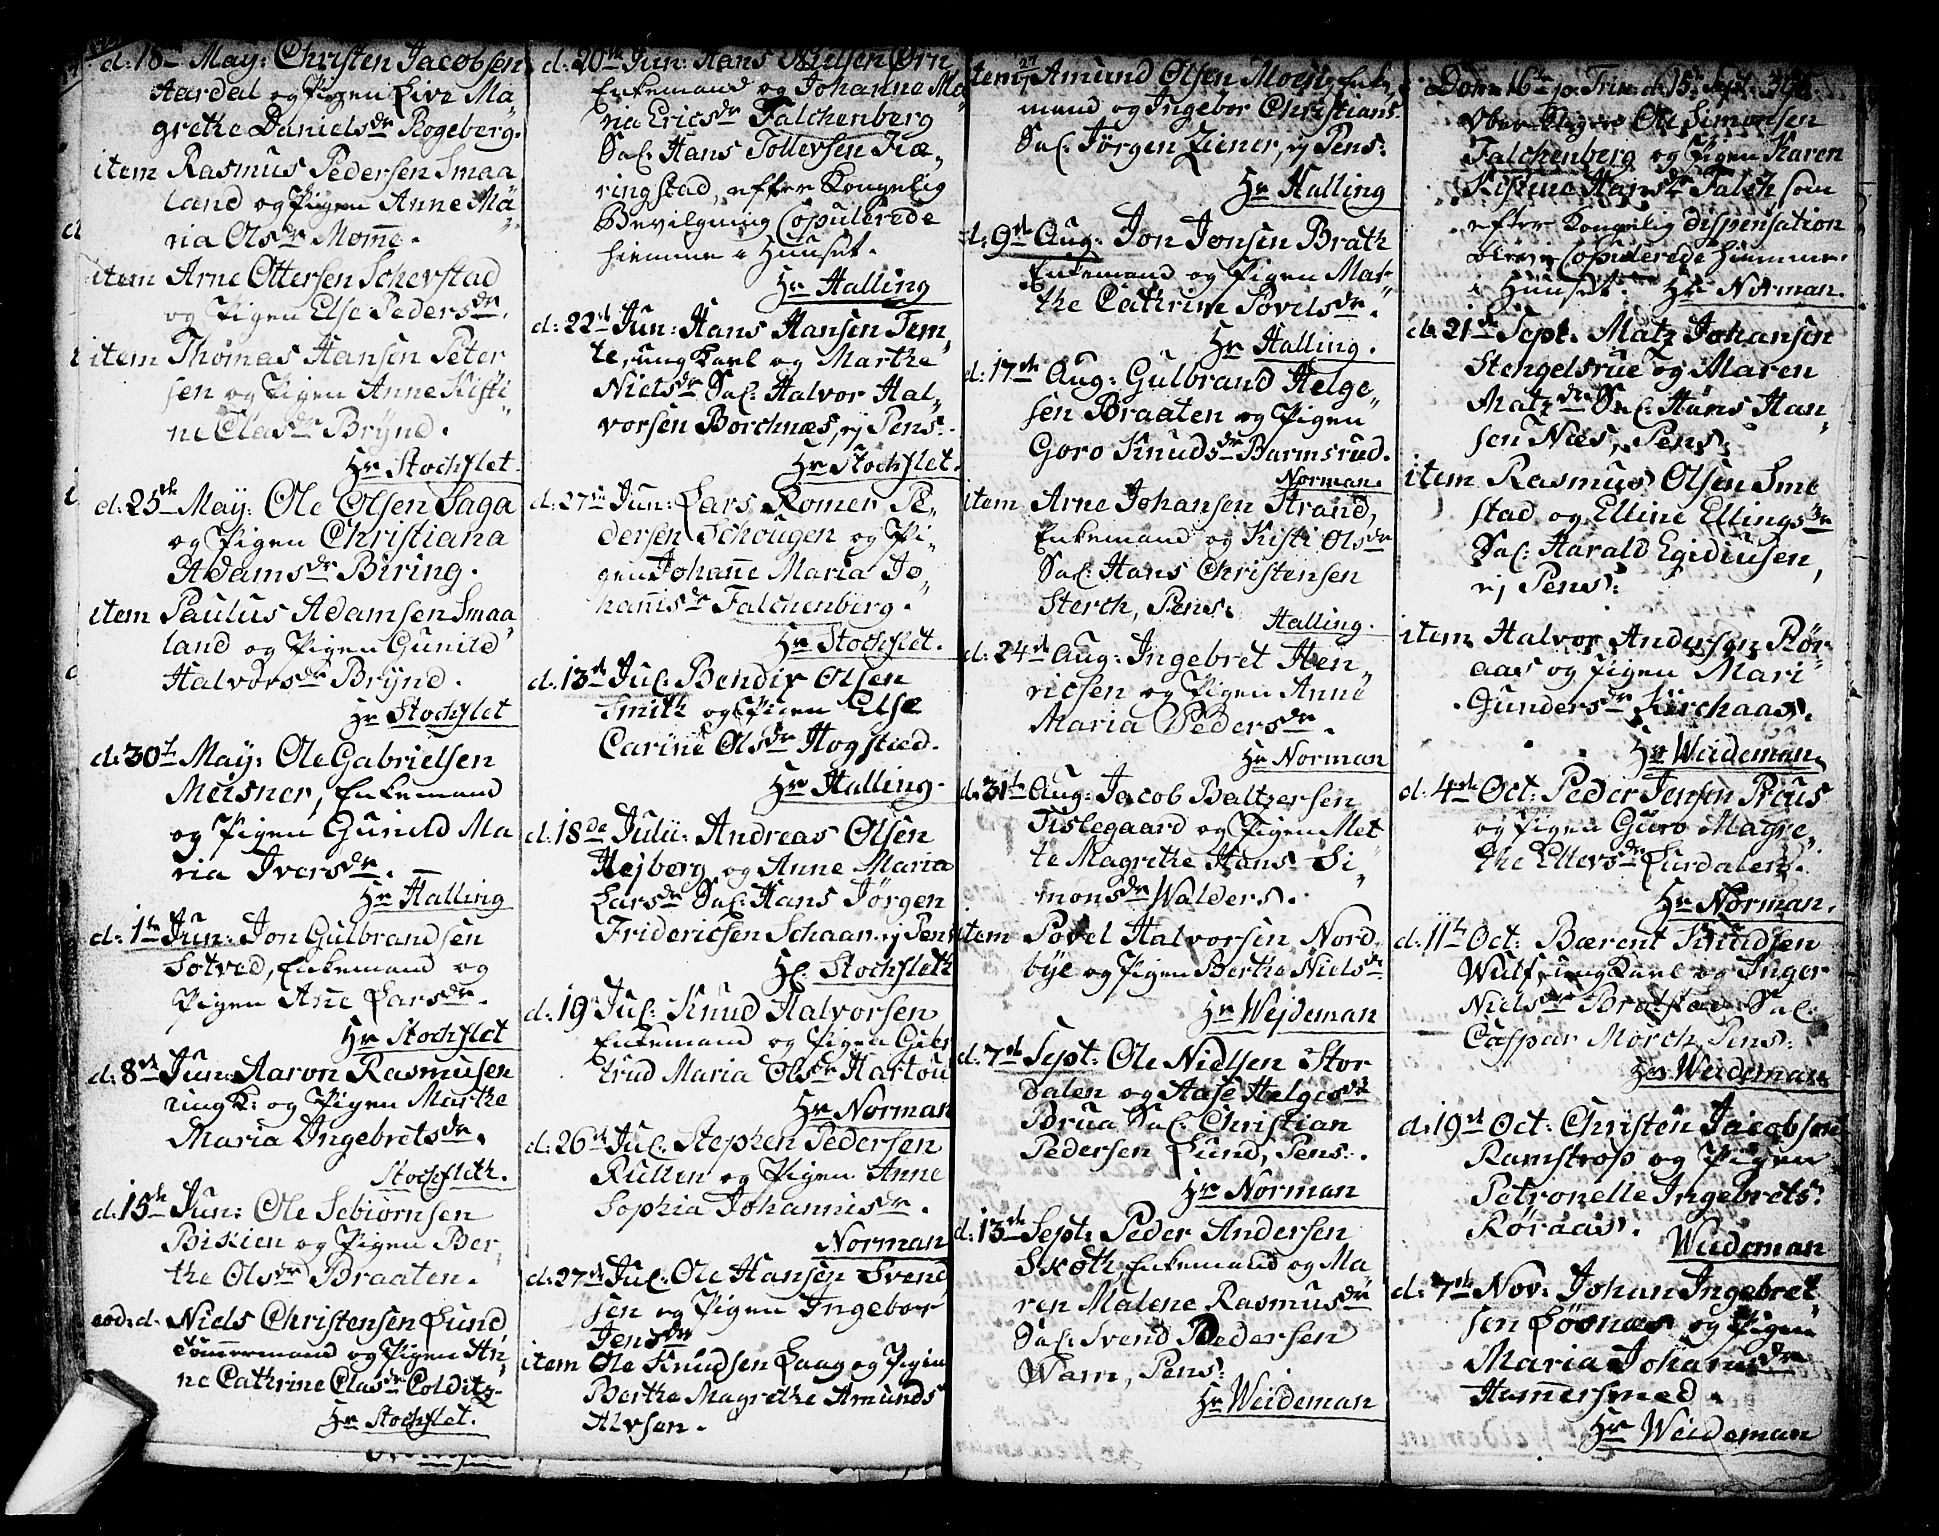 d: 18de May: Christen Jacobsen
Aardal og Pigen Live Ma„
grethe Danielsdr Rogeberg.
item Rasmus Pedersen Smaa
land og Pigen Anne Ma„
ria Olsdr Mom̄e.
item Arne Ottersen Schevstad
og Pigen Else Pedersdr.
item Thomas Hansen Peter
sen og Pigen Anne Kisti„
ne Clasdr Brÿnd.
Hr Stochflet
d: 25de May: Ole Olsen Saga
og Pigen Christiana
Adamsdr Biring.
item Paulus Adamsen Smaa
land og Pigen Gunild
Halvorsdr Brÿnd.
Hr Stochflet
d: 30t May: Ole Gabrielsen
Meisner, Enkemand
og Pigen Gunild Ma
ria Iversdr.
Hr Halling
d: 1te Jun: Jon Gulbrandsen
Sotved, Enkemand og
Pigen Ane Larsdr.
Hr Stochflet
d: 8de Jun: Aaron Rasmusen
ung K: og Pigen Marthe
Maria Ingebretsdr.
Stochfleth.
d: 15de Jun: Ole Sebiörnsen
Biskien og Pigen Ber„
the Olsdr Braaten.
eod: d. Niels Christensen Lund
Tömmermand og Pigen An„
ne Cathrine Clasdr Colditz
Hr Stochflet.
d: 20de Jun: Hans Nielsen Örn
Enkemand og Johanne Ma
ria Ericsdr Falchenberg
Sal: Hans Tollefsen Fiæ„
ringstad, efter Kongelig
Bevilgning Copulerede
hiemme i Huuset.
Hr Halling
d: 22de Jun: Hans Hansen Tem„
te, ung Karl og Marthe
Nielsdr Sal: Halvor Hal„
vorsen Borchnæs, ej Pens:
Hr Stochflet.
d: 27de Jun: Lars Romer Pe„
dersen Schougen og Pi„
gen Johan̄e Maria Jo„
han̄isdr Falchenberg.
Hr Stochflet.
d: 13de Jul: Bendix Olsen
Smith og Pigen Else
Carine Olsdr Hogstad.
Hr Halling.
d: 18de Julii: Andreas Olsen
Hejberg og Anne Maria
Larsdr Sal: Hans Jörgen
Fridericsen Schaan ej Pens
Hr Stochfleth
d: 19 Jul: Knud Halvorsen
Enkemand og Pigen Giær
trud Maria Olsdr Hartou
Hr Norman
d: 26de Jul: Stephen Pedersen
Rullen og Pigen Anne
Sophia Johannisdr.
Norman
d: 27de Jul: Ole Hansen Svend
sen og Pigen Ingebor
Jensdr
item Ole Knudsen Laag og Pigen
Berthe Magrethe Amunds
Alvsen.
item Amund Olsen Moen, Enke„
mand og Ingebor Christians
Sal: Jörgen Ziener, ej Pens:
Hr Halling
d: 9de Aug: Jon Jonsen Brath
Enkemand og Pigen Mar„
the Cathrine Povelsdr.
Hr Halling.
d: 17de Aug: Gulbrand Helge„
sen Braaten og Pigen
Goro Knudsdr Barmsrud.
Norman.
item Arne Johansen Strand,
Enkemand og Kisti Olsdr
Sal: Hans Christensen
Sterch, Pens:
Halling.
d: 24de Aug: Ingebret Hen„
ricsen og Pigen Anne
Maria Pedersdr.
Hr Norman
d: 31te Aug: Jacob Baltzersen
Tislegaard og Pigen Met
te Magrethe Hans Si„
monsdr Walders.
item Povel Halvorsen Nord„
bye og Pigen Berthe Nielsdr
Hr Wejdeman
d: 7de Sept: Ole Nielsen Stor
dalen og Aase Helgesdr
Brua Sal: Christian
Pedersen Lund, Pens:.
Hr Norman
d: 13de Sept: Peder Andersen
Skoth, Enkemand og Ma
ren Malene Rasmusdr
Sal: Svend Pedersen
Warn, Pens:
Hr Weideman
Dom: 16te p: Trin: d: 15de Sept.
Ole Simonsen
Falchenberg og Pigen Karen
Kistine Hansdr Falch, som
efter Kongelig dispensation
bleve Copulerede hiemme
i Huuset. Hr Norman.
d: 21de Sept. Matz Johansen
Stengelsrue og Maren
Matzdr Sal: Hans Han„
sen Næs, Pens:
item Rasmus Olsen Sme
stad og Elline Ellingsdr
Sal: Harald Egidiusen,
ej Pens:
item Halvor Andersen Rör„
aas og Pigen Mari
Gundersdr Kirchaas.
Hr Weideman.
d: 4de Oct: Peder Jensen Picus
og Pigen Guro Magre„
the Ellevsdr Lurdalen.
Hr Norman.
d: 11te Oct: Bærent Knudsen
Wulf, ung Karl og Inger
Nielsdr Bratstad Sal:
Caspar Morch, Pens:
Hr Weideman
d: 19de Oct: Christen Jacobsen
Ramstrop og Pigen
Petronelle Ingebrets:
Röraas.
Weideman
d: 7de Nov: Johan Ingebret„
sen Lösnæs og Pigen
Maria Johansdr
Ham̄ersmed.
Hr Weideman